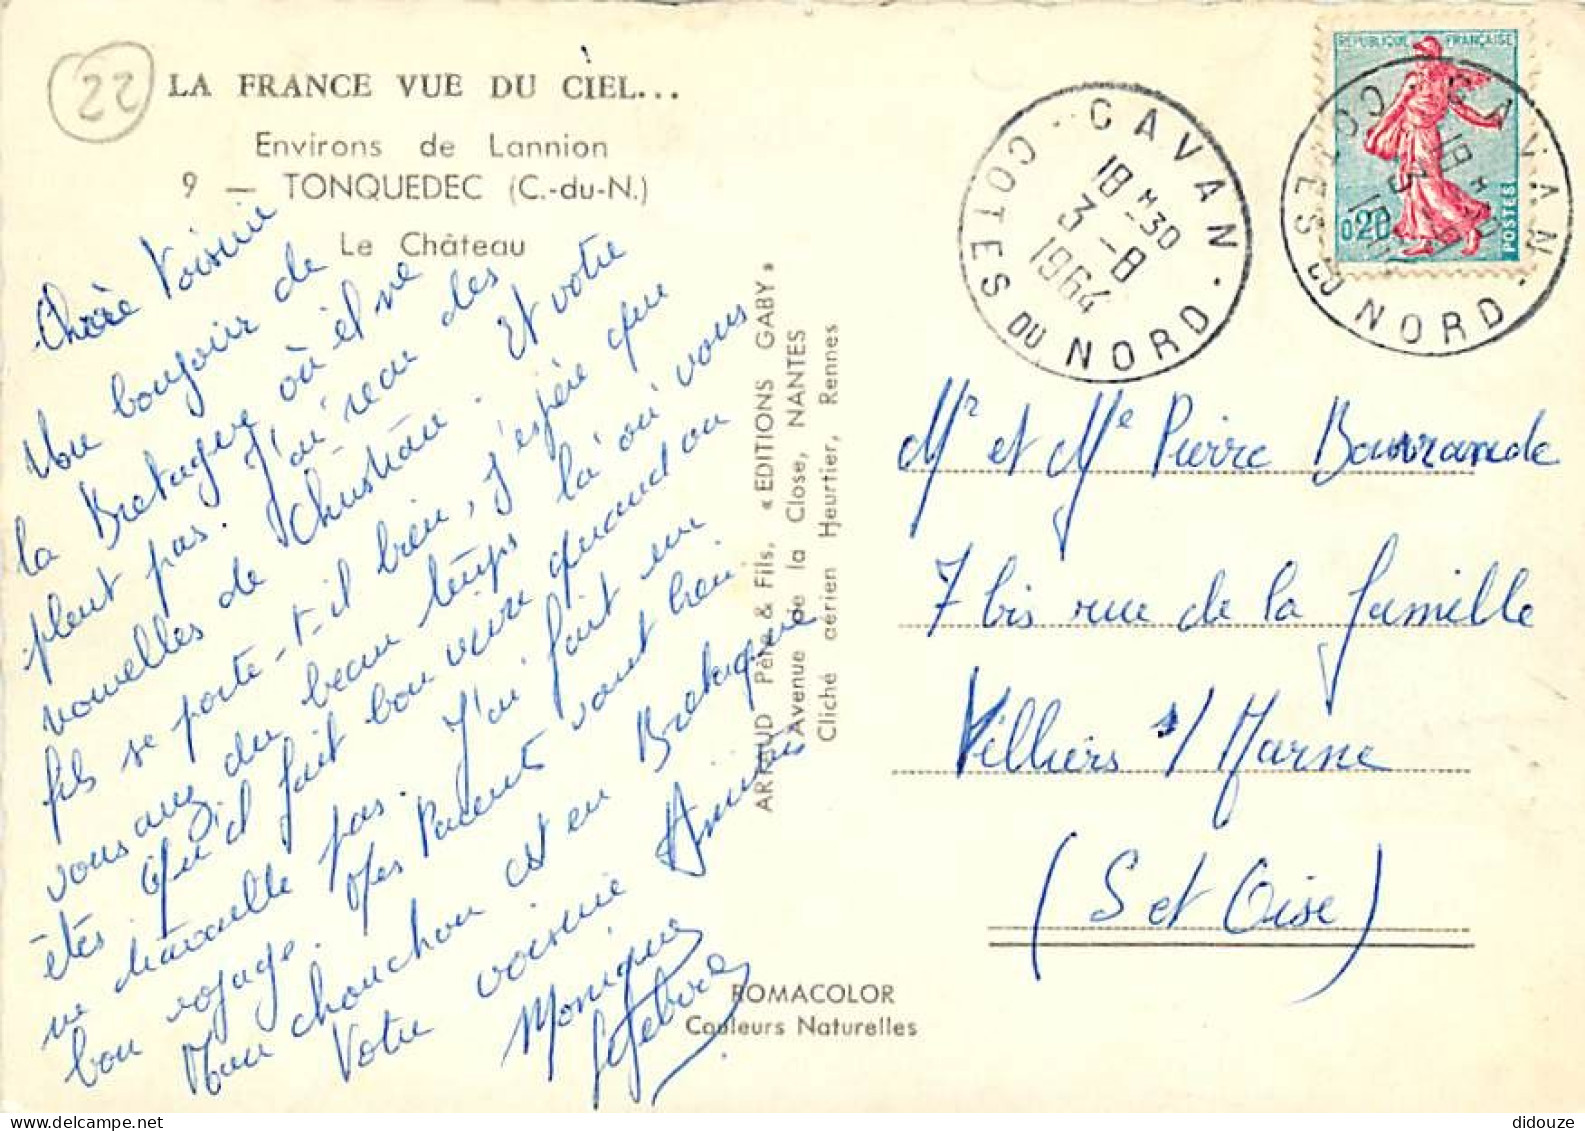 22
LA FRANCE VUE DU CIEL...
Environs de Lannion
9 — TONQUEDEC (C.-du-N.)
Le Château
Chère Voisine
Un bonjour de
la Bretagne où il ne
pleut pas. J'ai reçu des
nouvelles de Christian. Et votre
fils se porte-t-il bien, j'espère que
vous avez du beau temps là où vous
êtes. Qu'il fait bon vivre quand on
ne travaille pas. J'ai fait un
bon voyage. Mes Parents vont bien.
Mon chouchou est en Bretagne
Votre voisine Amitiés
Monique
Lefebvre
ARTAUD Père & Fils, « EDITIONS GABY »
Avenue de la Close, NANTES
Cliché aérien Heurtier, Rennes
ROMACOLOR
Couleurs Naturelles
CAVAN
COTES DU NORD
18 H 30
3 - 8
1964
REPUBLIQUE FRANÇAISE
0,20
POSTES
CAVAN
COTES DU NORD
18 H 30
3 - 8
1964
Mr et Me Pierre Bourrande
7 bis rue de la famille
Villiers s/ Marne
(S et Oise)
didouze